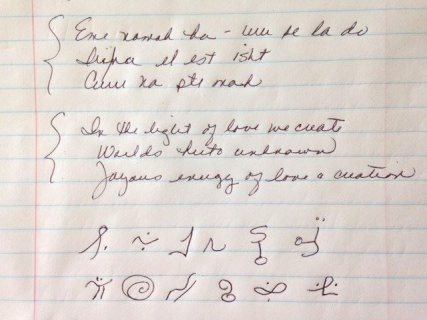 Eme namah ha - uu se la do
el est isht
na pte mah
In the light of love we create
Worlds hito unknown
Joyous energy of love & creation